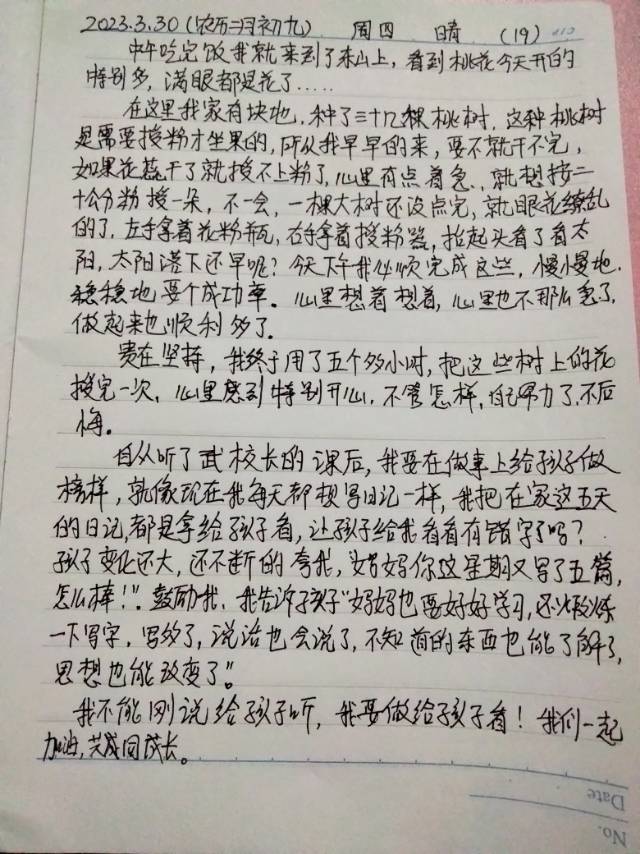 2023.3.30(农历二月初九) 周四 晴 (19)
中午吃完饭我就来到了东山上,看到桃花今天开的
特别多,满眼都是花了.....
在这里我家有块地,种了三十几棵桃树,这种桃树
是需要授粉才坐果的,所以我早早的来,要不就干不完,
如果花蕊干了就授不上粉了,心里有点着急,就想按二
十公分粉授一朵,不一会,一棵大树还没点完,就眼花缭乱
的了,左手拿着花粉瓶,右手拿着授粉器,抬起头看了看太
阳,太阳落下还早呢?今天下午我必须完成这些,慢慢地.
稳稳地要个成功率。心里想着想着,心里也不那么急了,
做起来也顺利多了。
贵在坚持,我终于用了五个多小时,把这些树上的花
授完一次,心里感到特别开心,不管怎样,自己努力了,不后
悔。
自从听了武校长的课后,我要在做事上给孩子做
榜样,就像现在我每天都想写日记一样,我把在家这五天
的日记,都是拿给孩子看,让孩子给我看看有错字了吗?
孩子变化还大,还不断的夸我,妈妈你这星期又写了五篇,
怎么棒!"鼓励我,我告诉孩子"妈妈也要好好学习,还以段炼
一下写字,写多了,说话也会说了,不知道的东西也能了解了,
思想也能改变了"。
我不能刚说给孩子听,我要做给孩子看!我们一起
加油,共成同成长。
Date
No.